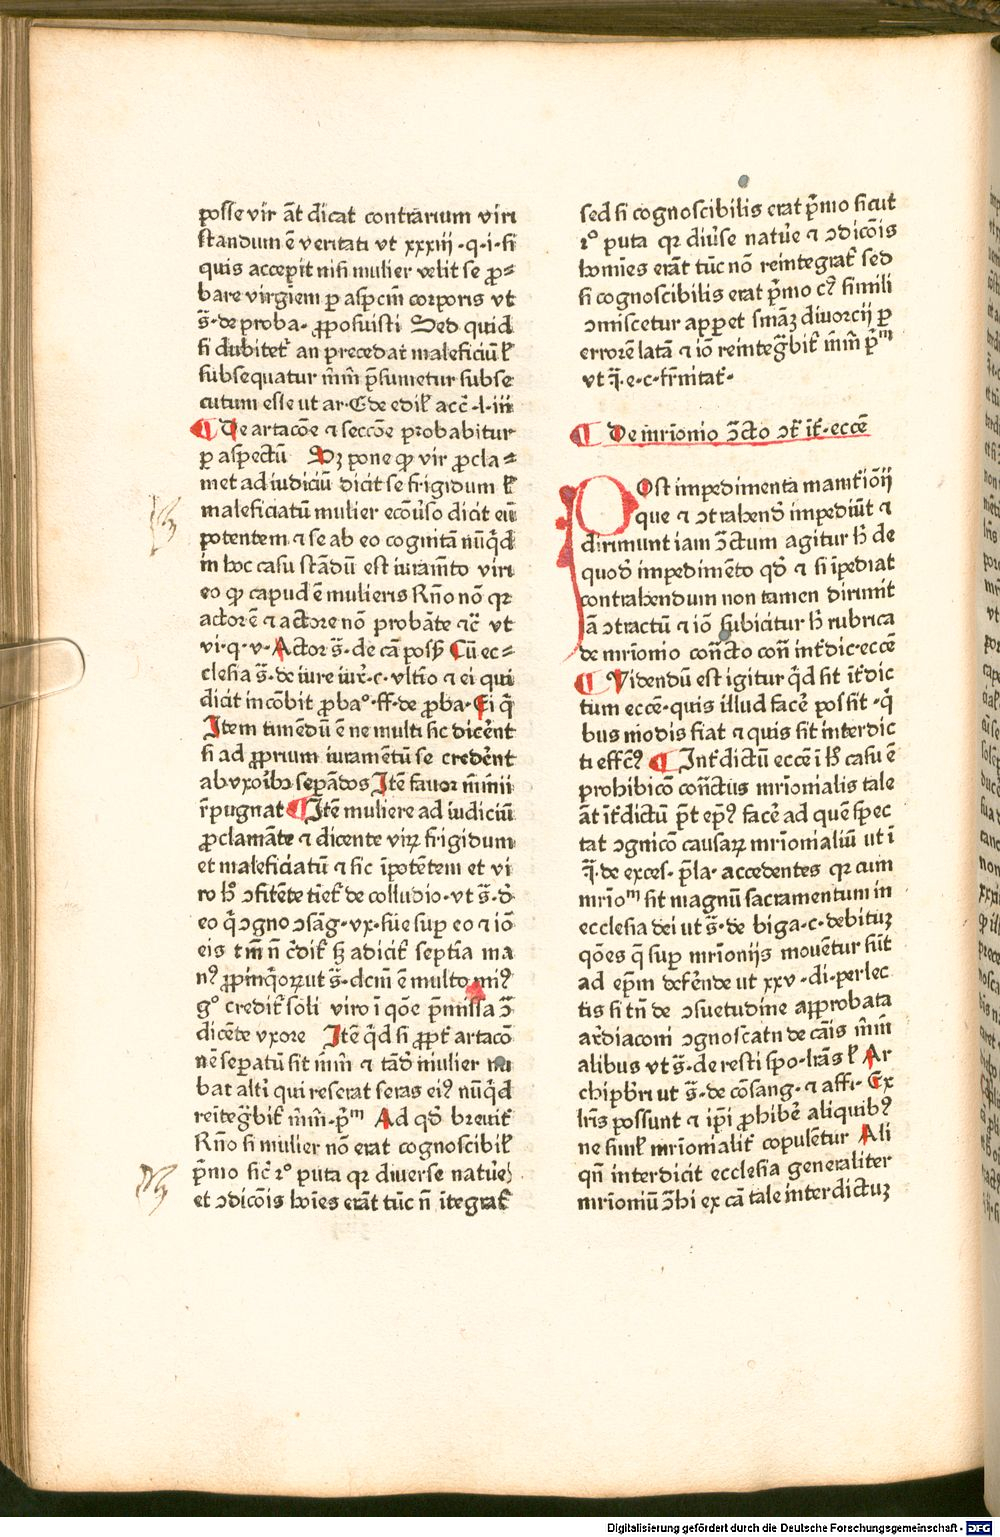 posse vir añt dicat contrarium viri
standum ē veritati vt xxxiij ·q·i· si
quis acceperit nisi mulier velit se ꝓ⸗
bare virginem ꝑ aspcm̄ corporis vt
s̄· de proba· ꝓposuisti Sed quid
si dubitet̉ an precedat maleficiū ł
subsequatur m̄im̄ p̄sumetur subse
cutum esse ut ar·
¶ De artacōe ⁊ seccōe probabitur
ꝑ aspectū Sꝫ pone ꝙ vir ꝓcla⸗
met ad iudiciū dicit se frigidum ł
maleficiatū mulier ecōūso dicit eū
potentem ⁊ se ab eo cognitā nūq̄d
in hoc casu stādū est iuram̄to viri
eo ꝙ capud ē mulieris Rn̄o nō qꝛ
actor ē ⁊ actore nō probāte ⁊c̄ vt
vi·q·v· Actor s̄· de cā poss̄ Cū ec⸗
clesia s̄· de iure iur̄·c· vltīo ⁊ ei qui
dicit incōbit ꝓbaᵒ·ff·de ꝓba· Ei q̄
Item timēdū ē ne multi sic dicēnt
si ad ꝓprium iuramētū se credēnt
ab vxoībꝫ sepandos Itē fauor m̄imīi
r̄pugnat ¶ Itē muliere ad iudiciū
ꝓclamāte ⁊ dicente virꝫ frigidum
et maleficiatū ⁊ sic īpotētem et vi
ro hᵒ ɔfitēte de colludio· vt s̄· d̄
eo q̄ ɔgno ɔsāg· vx· sue sup eo ⁊ iō
septīa ma
nꝰ ꝓpinq̄oꝝ ut s̄· dcm̄ ē multo miꝰ
gᵒ credit̉ soli viro ī qōe p̄missa ɔ̄
dicēte vxore Itē q̄d si ꝓpt̉ artacō
nē sepatū sit m̄im̄ ⁊ tād mulier nu
bat alti qui reserat seras eiꝰ nūq̄d
reītegᷓbit̉ m̄im̄·p̄ᵐ Ad qd̄ breuit̉
Rn̄o si mulier nō erat cognoscibil̉
p̄mo sic̉ 2ᵒ puta qꝛ diuerse natūe
et ɔdicōis hoīes erāt tūc n̄ ītegrat̉
sed si cognoscibilis erat p̄mo sicut
2ᵒ puta qꝛ diūse natūe ⁊ ɔdicōis
homīes erāt tūc nō reintegrat̉ sed
si cognoscibilis erat p̄mo cꝰ simili
ɔmiscetur apꝑet s̄niāꝫ diuorcij ꝑ
errorē latā ⁊ iō reīntegᷓbit̉ m̄im̄ p̄ᵐ
vt q̄·e·c·
¶ De mr̄ionio ɔ̄cto ɔt̉ īt̉·eccē
POst impedimenta mat̉iōij
que ⁊ ɔtrahend̄ impediūt ⁊
dirimunt iam ɔ̄ctum agitur h̄ de
quod̄ impedimēto qd̄ ⁊ si īpediat
contrahendum non tamen dirimit
iā ɔtractū ⁊ iō subicitur h̄ rubrica
de mr̄ionio coñcto coñ int̉dic·eccē
¶ Videndū est igitur q̄d sit int̉dic
tum eccē· quis illud facē possit· q̄
bus modis fiat ⁊ quis sit interdic
ti effcꝰ ¶ Int̉dictū eccē ī h̄ casu ē
prohibicō coñctus mr̄ionialis tale
āt īt̉dictū p̄t epꝰ facē ad quē spec
tat ɔgnicō causaꝝ mr̄ionialiū ut ī
q̄· de exces· p̄la· accedentes qꝛ cum
mr̄ioᵐ sit magnū sacramentum in
ecclesia dei ut s̄· de biga·c·debituꝫ
qōes q̄ sup mr̄ionijs mouētur sūt
ad ep̄m defēnde ut xxv·di·perlec
tis si tn̄ de ɔsuetudine approbata
ar̄diaconi ɔgnoscāt de cāis m̄im
alibus vt s̄· de resti spo·lr̄as ł Ar
chipbr̄i ut s̄· de cōsang· ⁊ affi· Ex
lr̄is possunt ⁊ ip̄i ꝓhibē aliquibꝰ
ne simł mr̄ionialit̉ copulētur Ali
qn̄ interdicit ecclesia generaliter
mr̄ioniū ɔ̄hi ex cā tale interdictuꝫ
Digitalisierung gefördert durch die Deutsche Forschungsgemeinschaft - DFG